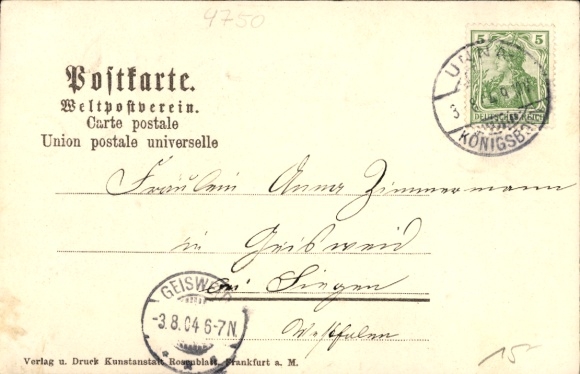 4750
Postkarte.
Weltpostverein.
Carte postale
Union postale universelle
5 5
UNNA
KÖNIGSBO
Fräulein Anna Zimmermann
in Geisweid
bei Siegen
Westfalen
GEISWEID
-3.8.04 6-7N.
Verlag u. Druck Kunstanstalt Rosenblatt, Frankfurt a. M.
15-